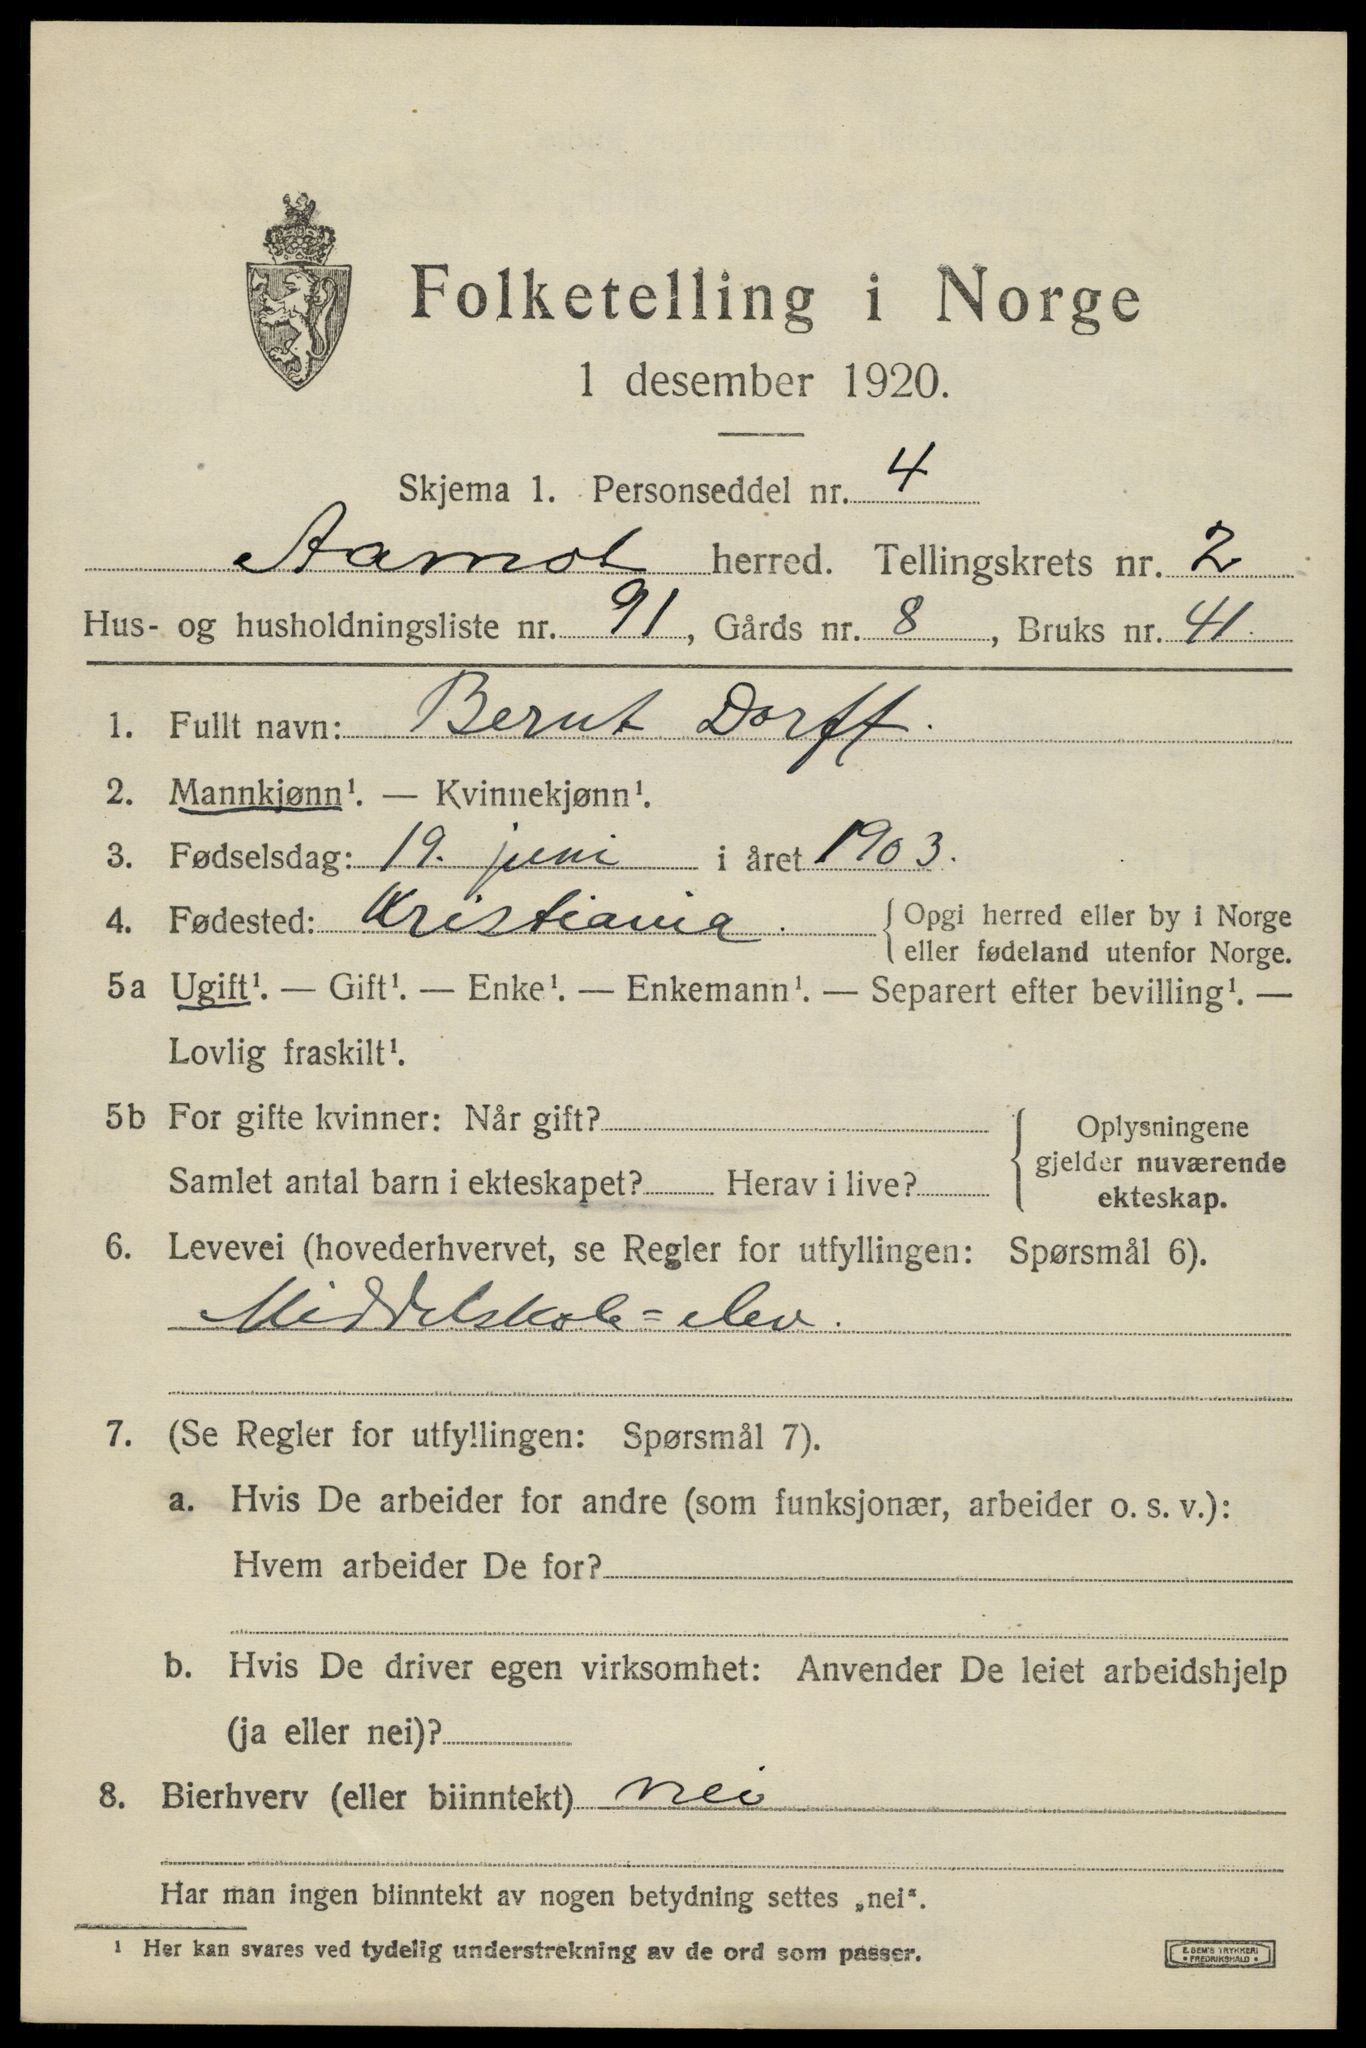 Folketelling i Norge
1 desember 1920.
Skjema 1. Personseddel nr. 4
Aamot herred. Tellingskrets nr. 2
Hus- og husholdningsliste nr. 91, Gårds nr. 8, Bruks nr. 41.
1. Fullt navn: Bernt Dorff.
2. Mannkjønn¹. — Kvinnekjønn¹.
3. Fødselsdag: 19. juni i året 1903.
4. Fødested: Kristiania. { Opgi herred eller by i Norge
eller fødeland utenfor Norge.
5a Ugift¹. — Gift¹. — Enke¹. — Enkemann¹. — Separert efter bevilling¹. —
Lovlig fraskilt¹.
5b For gifte kvinner: Når gift?
Samlet antal barn i ekteskapet? Herav i live?
{ Oplysningene
gjelder nuværende
ekteskap.
6. Levevei (hovederhvervet, se Regler for utfyllingen: Spørsmål 6).
Middelskole=elev.
7. (Se Regler for utfyllingen: Spørsmål 7).
a. Hvis De arbeider for andre (som funksjonær, arbeider o. s. v.):
Hvem arbeider De for?
b. Hvis De driver egen virksomhet: Anvender De leiet arbeidshjelp
(ja eller nei)?
8. Bierhverv (eller biinntekt) nei
Har man ingen biinntekt av nogen betydning settes „nei“.
¹ Her kan svares ved tydelig understrekning av de ord som passer.
E. SEM'S TRYKKERI
• FREDRIKSHALD •